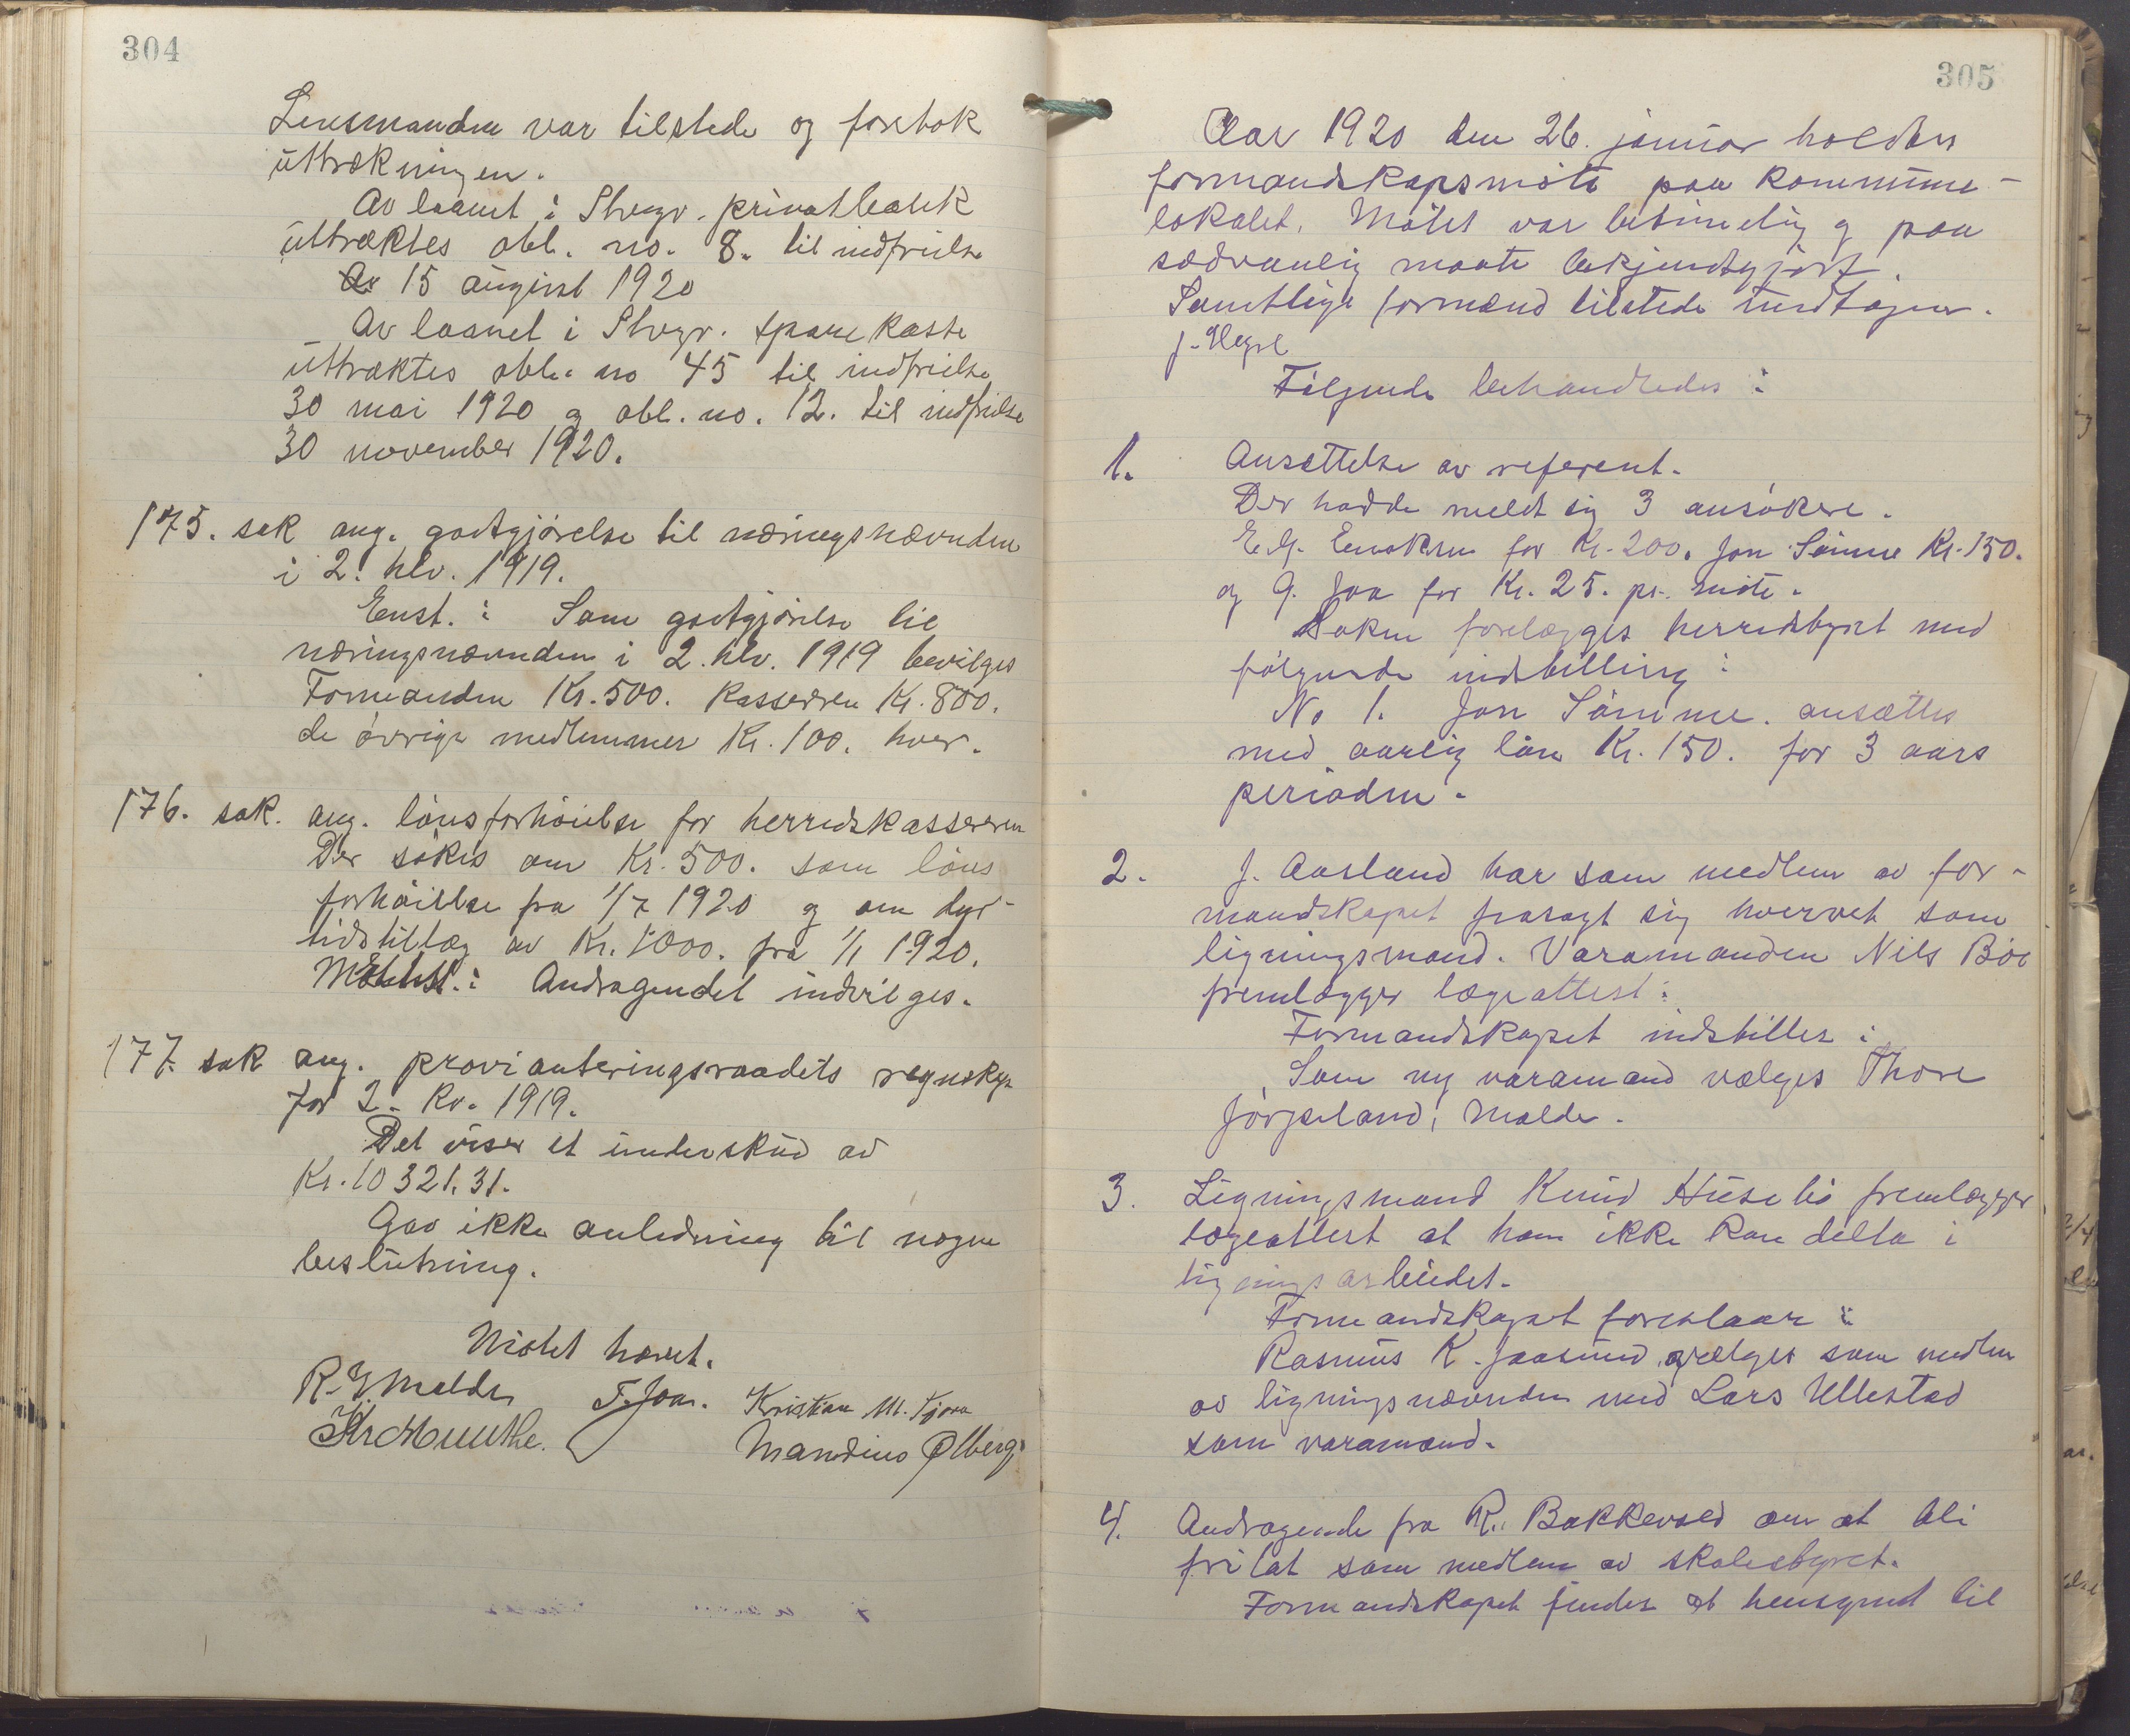 304
Lensmanden var tilstede og foretok
uttrækningen.
Av laanet i Stvgr. privatbank
uttræktes obl. no. 8. til indfrielse
15 august 1920
Av laanet i Stvgr. Sparekasse
uttræktes obl. no 45 til indfrielse
30 mai 1920 og obl. no. 12. til indfrielse
30 november 1920.
175. sak ang. godtgjörelse til næringsnævnden
i 2. hlv. 1919.
Enst.: Som godtgjörelse til
næringsnævnden i 2. hlv. 1919 bevilges
Formanden Kr. 500. Kassereren Kr. 800.
de övrige medlemmer Kr. 100. hver.
176. sak. ang. lönsforhöielse for herredskassereren
Der sökes om Kr. 500. som löns
forhöielse fra 1/7 1920 og om dyr-
tidstillæg av Kr. 1000. fra 1/1 1920.
Andragendet indvilges.
177. sak ang. provianteringsraadets regnskap
for 2. kv. 1919.
Det viser et underskud av
Kr. 10321.31.
Gav ikke anledning til nogen
beslutning.
Mötet hævet.
R. G. Malde T. Joa. Kristian M. Kjora
Kr Munthe. Mandius Ølberg
305
Aar 1920 den 26. januar holdtes
formandskapsmöte paa kommune-
lokalet. Mötet var betimelig og paa
sedvanlig maate bekjendtgjort.
Samtlige formænd tilstede undtagen
J. Hegre
Fölgende behandledes:
1. Ansettelse av referent.
Der hadde meldt sig 3 ansökere.
E. G. Enoksen for Kr. 200. Jon Sömme Kr. 150.
og G. Joa for Kr. 25. pr. möte.
Saken forelægges herredstyret med
fölgende indstilling:
No 1. Jon Sömme. ansættes
med aarlig lön Kr. 150. for 3 aars
perioden.
2. J. Aasland har som medlem av for-
mandskapet frasagt sig hvervet som
ligningsmand. Varamanden Nils Böe
fremlægger lægeattest:
Formandskapet indstiller:
Som ny varamand vælges Thore
Jörpeland, Malde.
3. Ligningsmand Knud Husebö fremlægger
lægeattest at han ikke kan delta i
ligningsarbeidet.
Formandskapet foreslaar:
Rasmus K. Jaasund vælges som medlem
av ligningsnævnden med Lars Ullestad
som varamand.
4. Andragende fra R. Bakkevold om at bli
fritat som medlem av skolestyret.
Formandskapet finder at hensynet til